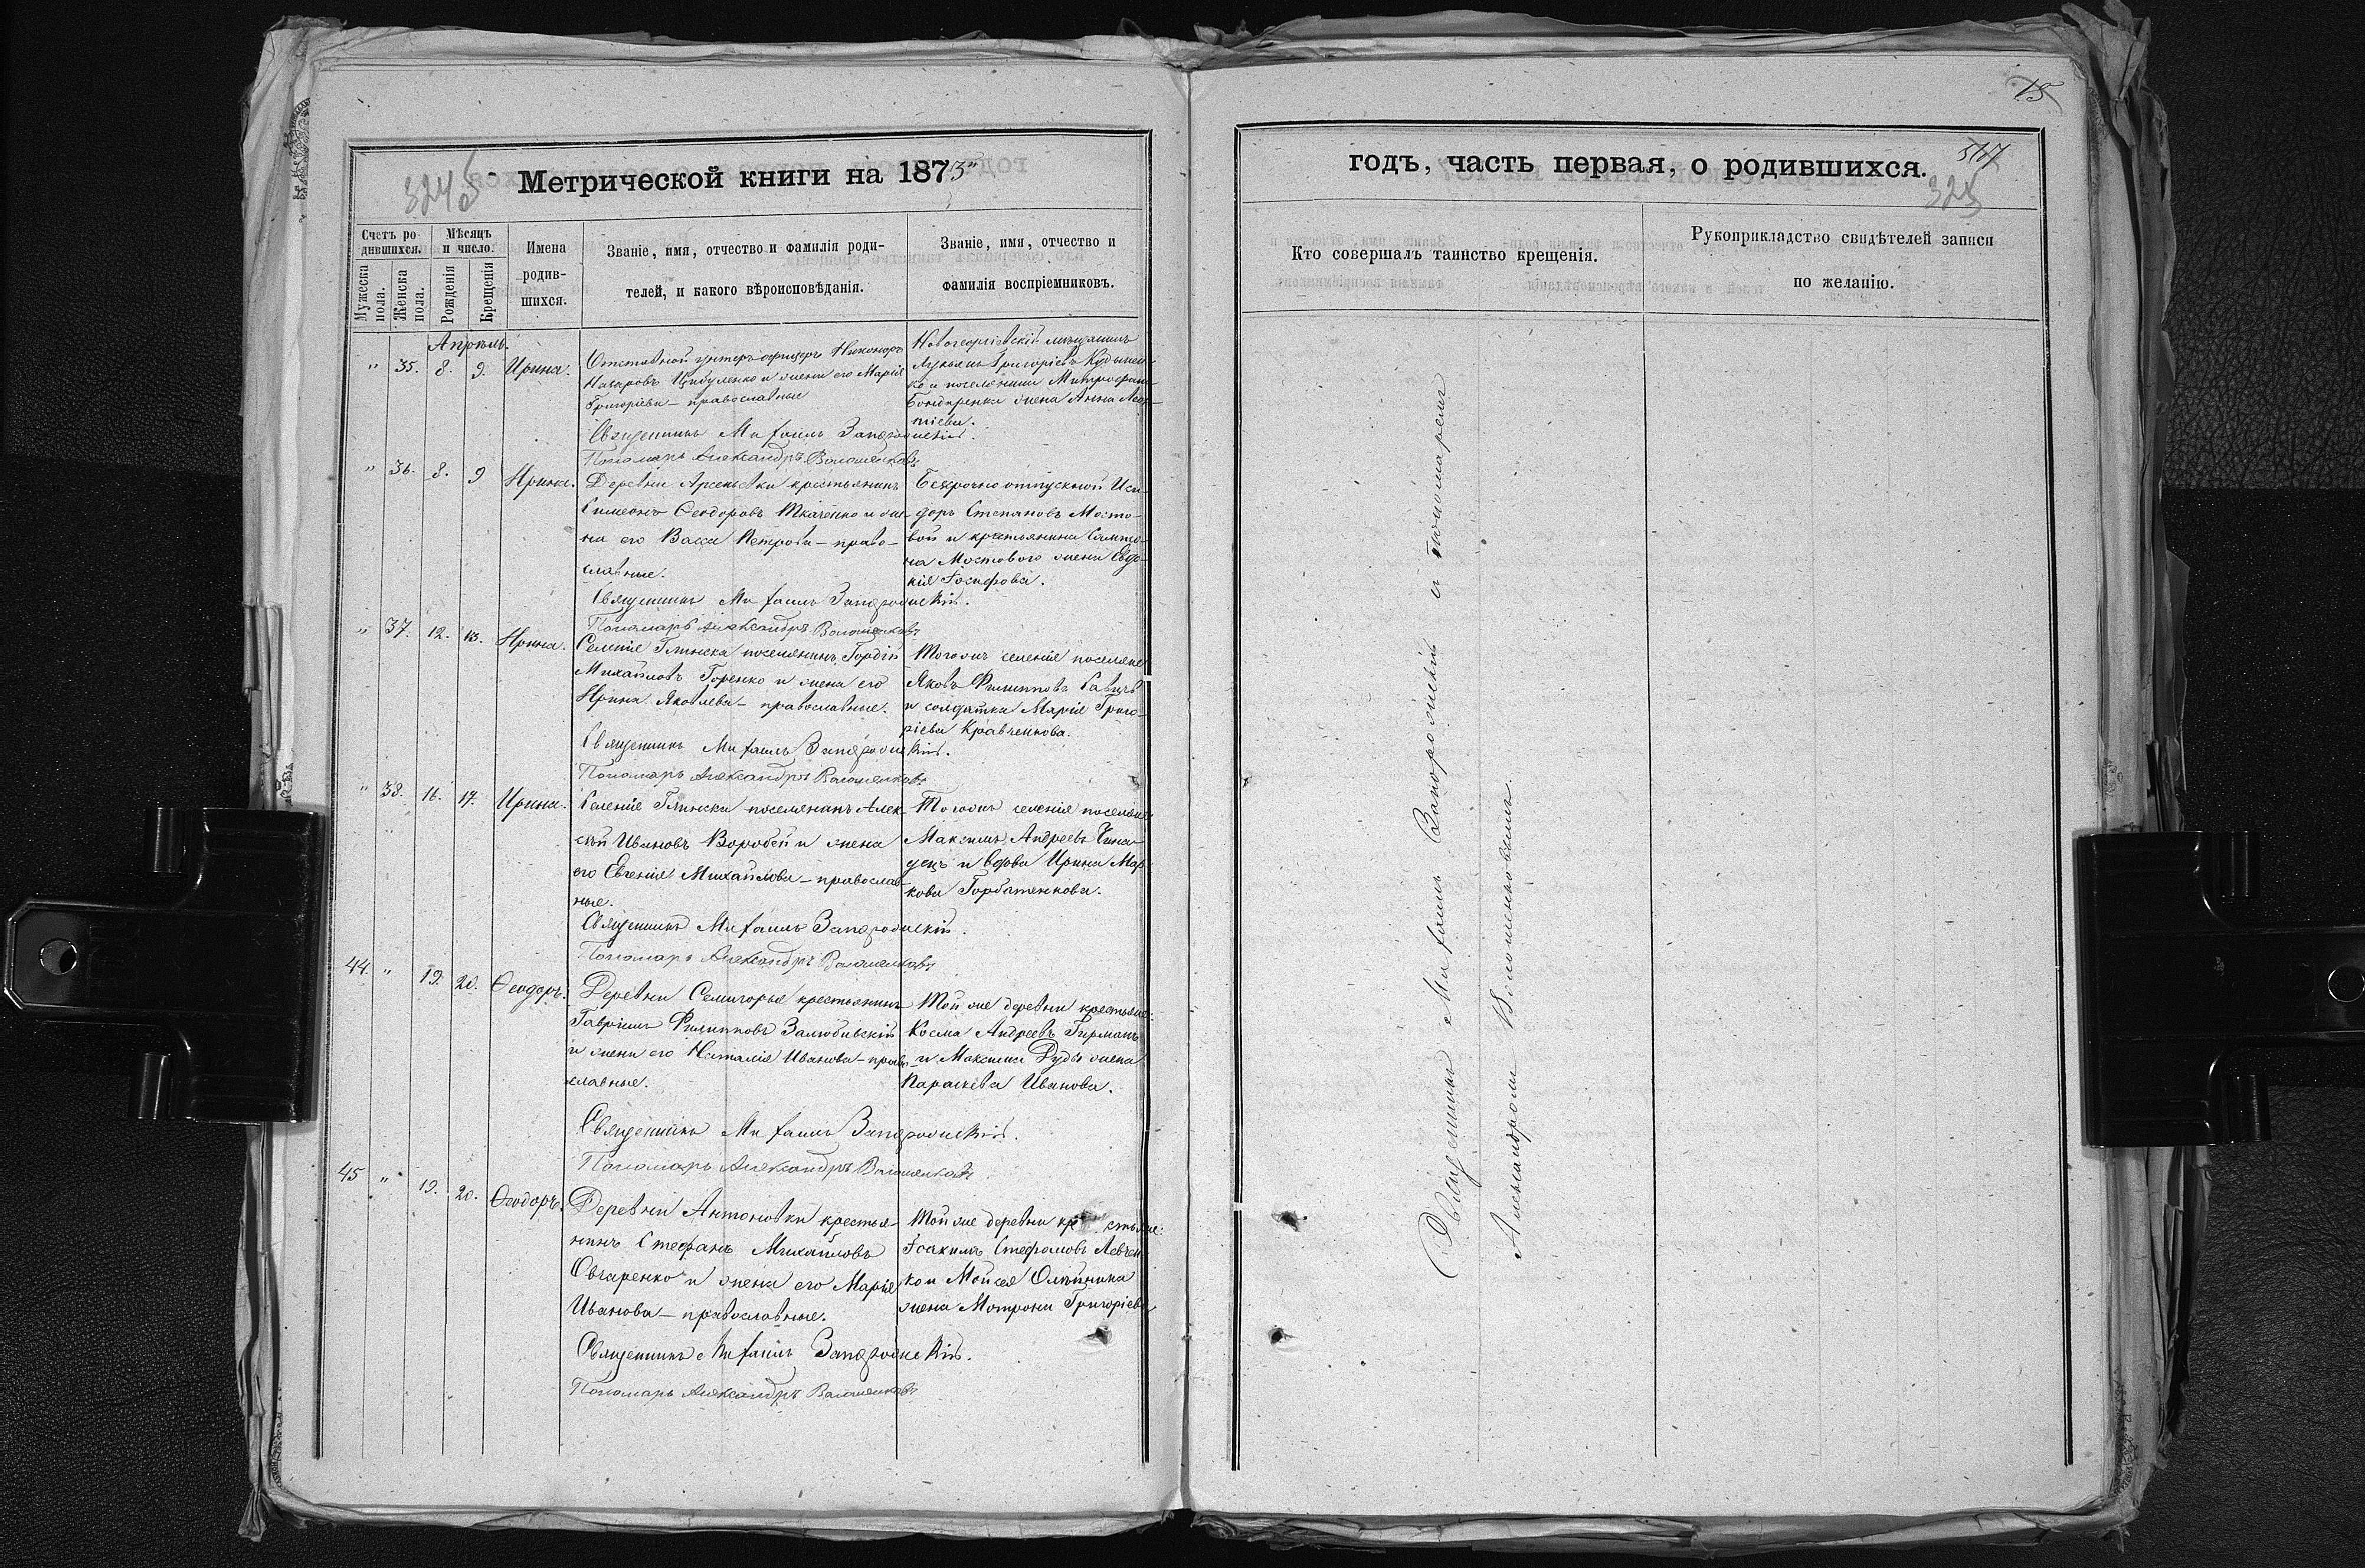 Метрической книги на 1875
Счетъ ро-
дившихся.
Мѣсяцъ
и число.
Мужеска
пола.
Женска
пола.
Рожденія
Крещенія
Имена
родив-
шихся.
Званіе, имя, отчество и фамилія роди-
телей, и какого вѣроисповѣданія.
Званіе, имя, отчество и
фамилія воспріемниковъ.
Апрѣль.
" 35. 8. 9. Ирина.
Отставной унтеръ-офицеръ Никоноръ
Назаровъ Цибуленко и жена его Марія
Григоріева – православные
Новогеоргіевскій мѣщанинъ
Лукьянъ Григоріевъ
ко и поселянина Митрофана
Бондаренка жена Анна Леон-
тіева.
Священникъ Михаилъ Запорожскій.
Пономарь Александръ
" 36. 8. 9 Ирина.
Деревни Арсеньевки крестьянинъ
Симеонъ Ѳеодоровъ Ткаченко и же-
на его Васса Петрова – право-
славные.
Безсрочно отпускной Иси-
доръ Степановъ Мосто-
вой и крестьянина
на Мостового жена Евдо-
кія Іосифова.
Священникъ Михаилъ Запорожскій.
Пономарь Александръ
" 37. 12. 13. Ирина.
Селенія Глинска поселянинъ Гордій
Михайловъ Горенко и жена его
Ирина Яковлева – православные.
Тогожъ селенія поселяне
Яковъ Филипповъ Савичъ
и солдатка Марія Григо-
ріева Кравченкова.
Священникъ Михаилъ Запорожскій.
Пономарь Александръ
" 38. 16. 17. Ирина.
Селенія Глинска поселянинъ Алек-
сѣй Ивановъ Воробей и жена
его Евгенія Михайлова – православ-
ные.
Тогожъ селенія поселяне
Максимъ Андреевъ
и вдова Ирина Мар-
кова Горбатенкова.
Священникъ Михаилъ Запорожскій.
Пономарь Александръ
44. " 19. 20. Ѳеодоръ.
Деревни Семигорья крестьянинъ
Гавріилъ Филипповъ Залюбивскій
и жена его Наталія Иванова – право-
славные.
Той же деревни крестьяне:
Косма Андреевъ Гирманъ
и Максима Дуды жена
Параскева Иванова.
Священникъ Михаилъ Запорожскій.
Пономарь Александръ
45 " 19. 20. Ѳеодоръ.
Деревни Антоновки крестья-
нинъ Стефанъ Михайловъ
Овчаренко и жена его Марія
Иванова – православные.
Той же деревни крестьяне:
Іоакимъ Стефановъ Левчен-
ко и Мойсея Олѣйника
жена Матрона Григоріева
Священникъ Михаилъ Запорожскій.
Пономарь Александръ
15
годъ, часть первая, о родившихся.
517
325
Кто совершалъ таинство крещенія.
Рукоприкладство свидѣтелей записи
по желанію.
Священникъ Михаилъ Запорожскій съ пономаремъ
Александромъ